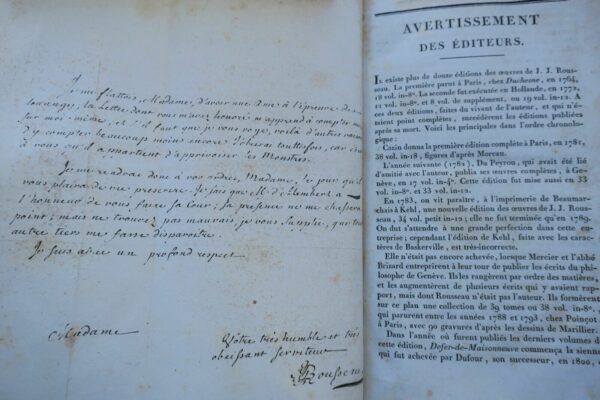 Je me flattois, Madame, d'avoir une Ame à l'épreuve des
louanges; la Lettre dont vous m'avez honoré m'apprend à compter moins
sur moi-même, et s'il faut que je vous voye, voilà d'autres raisons
d'y compter beaucoup moins encore. J'obeirai toutesfois, car c'est
à vous qu'il appartient d'apprivoiser les Monstres.
Je me rendrai donc à vos ordres, Madame, le jour qu'il
vous plaira de me prescrire. Je sais que M. d'Alembert a
l'honneur de vous faire sa Cour; sa présence ne me chassera
point; mais ne trouvez pas mauvais, je vous supplie, que tout
autre tiers me fasse disparoitre.
Je suis avec un profond respect
Madame
Vôtre très humble et très
obeissant serviteur
JJRousseau
AVERTISSEMENT
DES ÉDITEURS.
IL existe plus de douze éditions des œuvres de J. J. Rous-
seau. La première parut à Paris, chez Duchesne, en 1764,
18 vol. in-8°. La seconde fut exécutée en Hollande, en 1772,
11 vol. in-8° et 8 vol. de supplément, ou 19 vol. in-12. A
ces deux éditions, faites du vivant de l'auteur, et qui n'é-
toient point complètes, succédèrent les éditions publiées
après sa mort. Voici les principales dans l'ordre chronolo-
gique:
Cazin donna la première édition complète à Paris, en 1781,
38 vol. in-18, figures d'après Moreau.
L'année suivante (1782), Du Peyrou, qui avait été lié
d'amitié avec l'auteur, publia ses œuvres complètes, à Ge-
nève, en 17 vol. in-4°. Cette édition fut mise aussi en 33
vol. in-8° et 33 vol. in-12.
En 1783, on vit paraître, à l'imprimerie de Beaumar-
chais à Kehl, une nouvelle édition des œuvres de J. J. Rous-
seau, 34 vol. petit in-12; elle ne fut terminée qu'en 1789.
On dut s'attendre à une grande perfection dans cette en-
treprise; cependant l'édition de Kehl, faite avec les carac-
tères de Baskerville, est très-incorrecte.
Elle n'était pas encore achevée, lorsque Mercier et l'abbé
Brizard entreprirent à leur tour de publier les écrits du phi-
losophe de Genève. Ils les rangèrent par ordre des matières,
et les augmentèrent de plusieurs écrits qui y avaient rap-
port, mais dont Rousseau n'était pas l'auteur. Ils formèrent
sur ce plan une collection de 39 tomes ou 38 vol. in-8°,
qui parurent entre les années 1788 et 1793, chez Poinçot
à Paris, avec 90 gravures d'après les dessins de Marillier.
Dans l'année où furent publiés les derniers volumes de
cette édition, Defer-de-Maisonneuve commença la sienne,
qui fut achevée par Dufour, son successeur, en 1800,